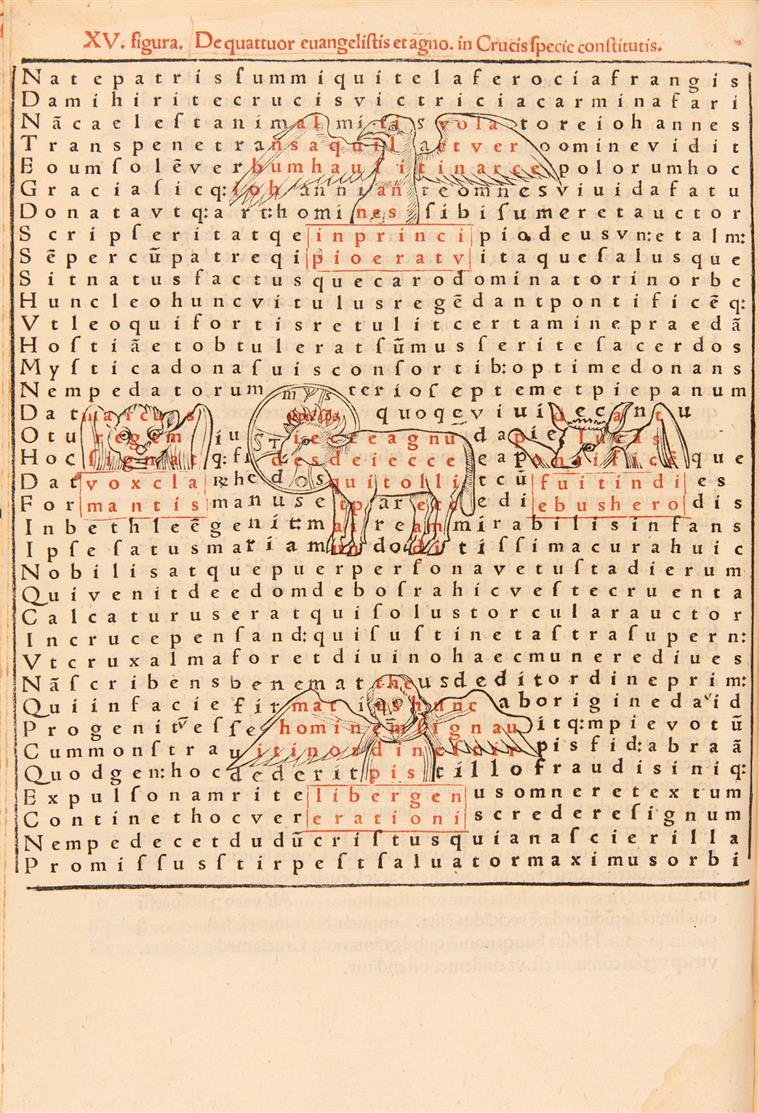 XV. figura. De quattuor euangeliſtis et agno. in Crucis ſpecie conſtitutis.
Natepatrisſummiquitelaferociafrangis
Damihiritecruciſvictriciacarminafari
Nãcaeleſtanimalmiſtisvolatoreiohannes
Transpenetransaquilaetveroominevidit
Eoumſolẽverbumhauſitinarcepolorumhoc
Graciaſicq:iohannianteomnesviuidafatu
Donatavtq:art:hominesſibiſumeretauctor
Scripſeritatqueinprincipiodeusvn:etalm:
Sẽpercũpatreqipioeratvitaqueſalusque
Sitnatusfactusquecarodominatorinorbe
Huncleohuncvitulusregẽdantpontificẽq:
Vtleoquifortisretulitcertaminepraedã
Hoſtiãetobtuleratſũmusſeriteſacerdos
Myſticadonaſuisconſortib:optimedonans
Nempedatorummysterioſeptemetpiepanum
quoqẽviuidecantu
dapielucas
Hocſignatq:fidesdeiecceeapontificẽque
Datvoxclarquitollitcũfuitindies
Formantismanusetparetediebusherodis
Inbethleẽgenitmatreammirabilisinfans
Ipſeſatusmariammundodetiſſimacurahuic
Nobilisatquepuerperſonavetuſtadierum
Quivenitdeedomdeboſrahicveſtecruenta
Calcaturuseratquiſolustorcularauctor
Incrucepenſand:quiſuſtinetaſtraſupern:
Vtcruxalmaforetdiuinohaecmunerediues
Nãſcribensbenemattheusdeditordineprim:
Quiinfaciefirmatiqshuncaboriginedavid
Progenitṽeſſehominemſignauitq:mpievotũ
piſfid:abraã
Quodgen:hocdederitpistilloſraudisiniq:
Expulſonamritelibergenusomneretextum
Continethocvererationiscredereſignum
Nempedecetdudũcriſtusquianaſcierilla
Promiſſusſtirpeſtſaluatormaximusorbi